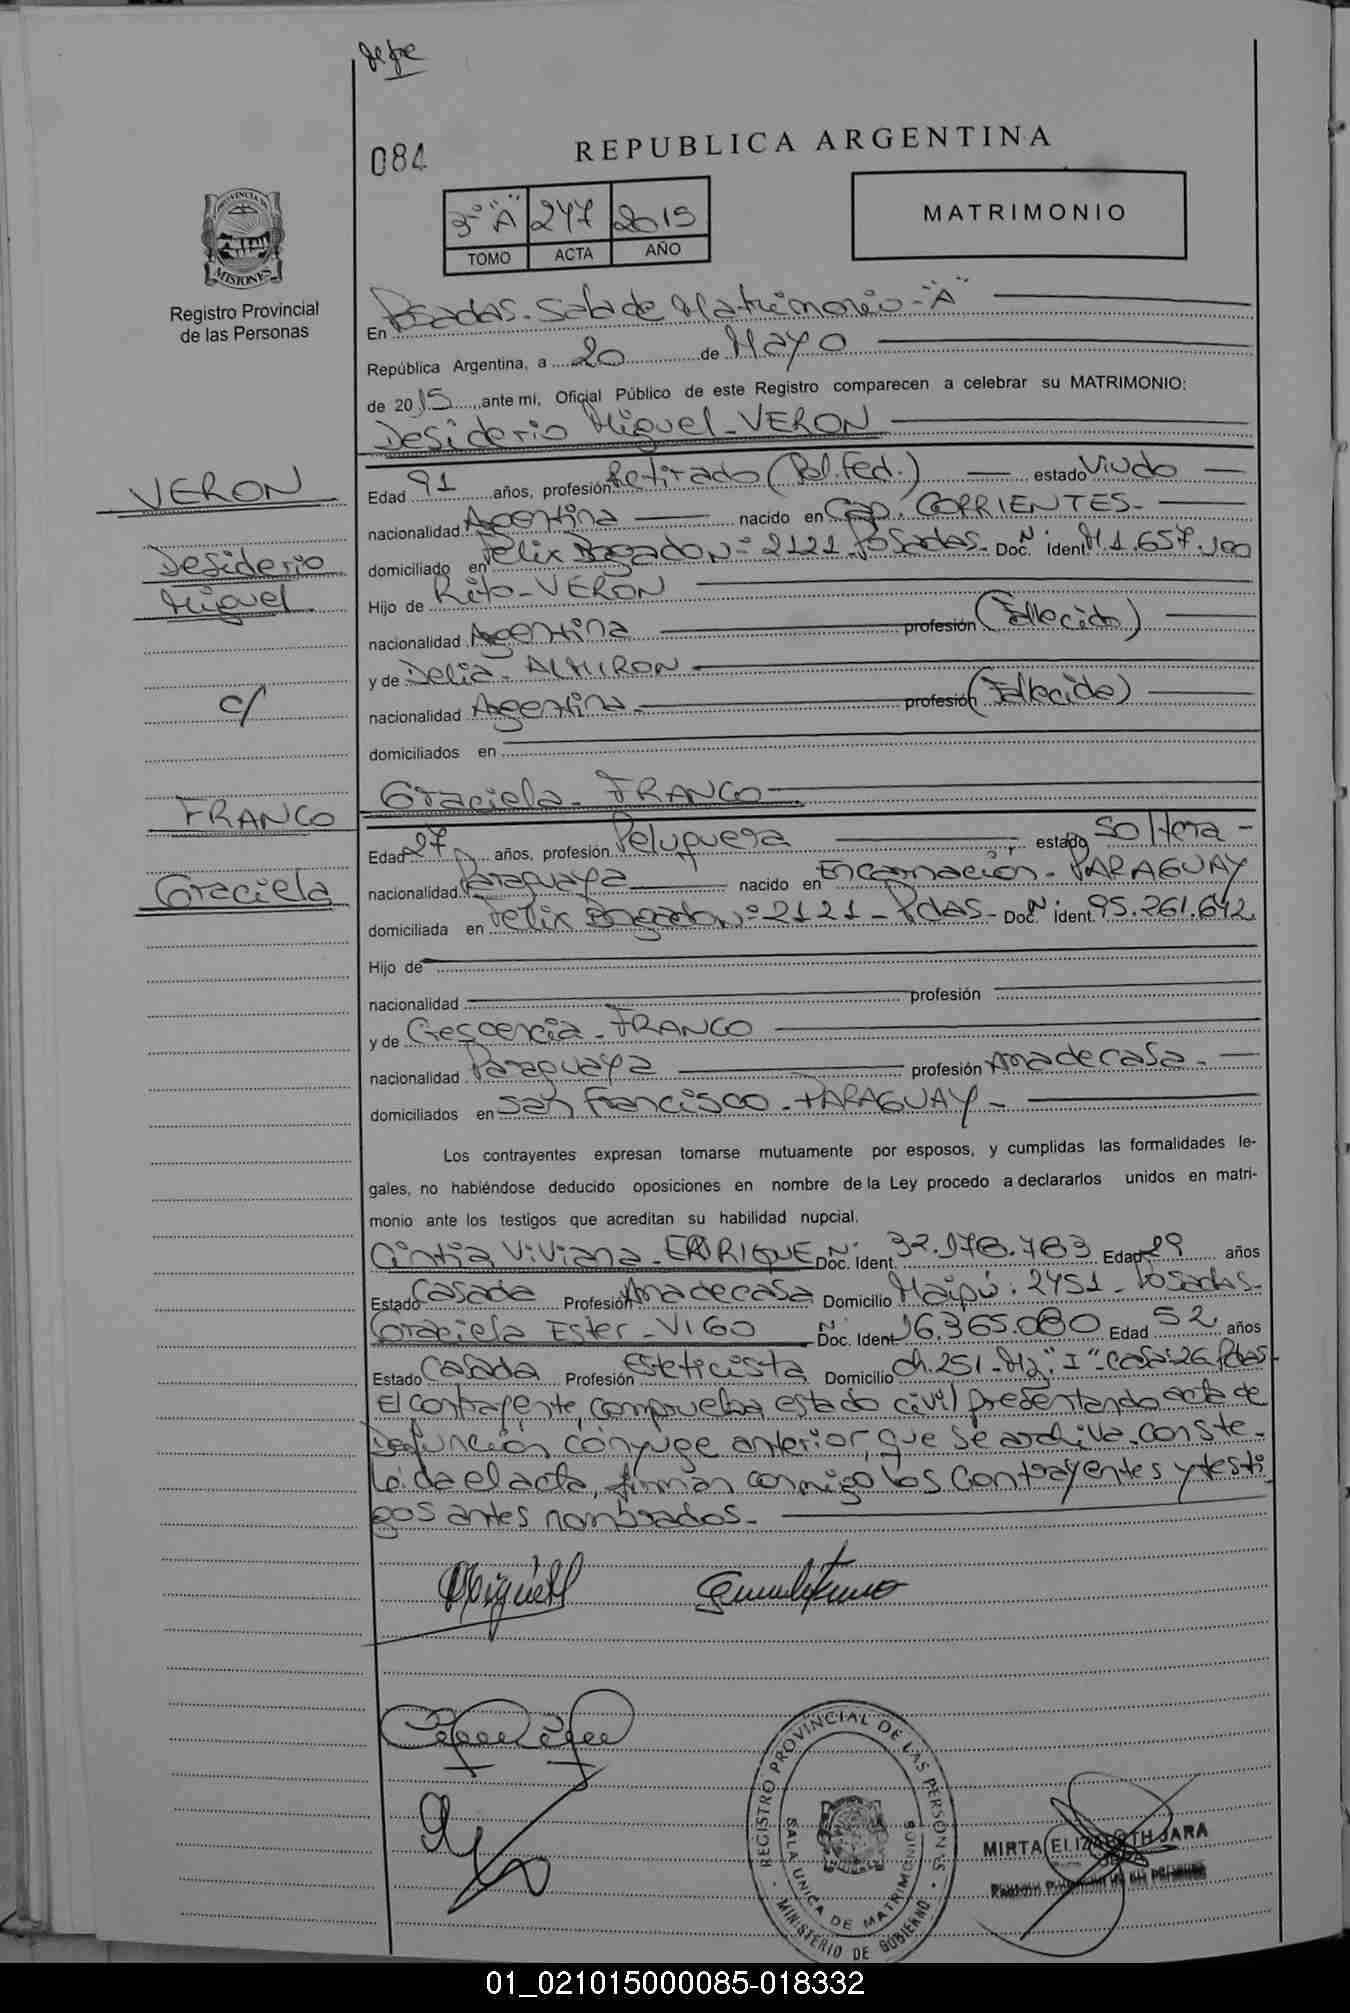 084
REPUBLICA ARGENTINA
3º "A" 247 2015
TOMO ACTA AÑO
MATRIMONIO
PROVINCIA DE
MISIONES
Registro Provincial
de las Personas
En Posadas - Sala de Matrimonio - "A"
República Argentina, a 20 de Mayo
de 2015, ante mi, Oficial Público de este Registro comparecen a celebrar su MATRIMONIO:
Desiderio Miguel - VERON
VERON
Desiderio
Miguel
c/
FRANCO
Graciela
Edad 91 años, profesión Retirado (Pol. Fed.) estado Viudo
nacionalidad Argentina nacido en Cap. CORRIENTES -
domiciliado en Felix Bogado Nº 2121 - Posadas - Doc. Nº ident M 1.657.100
Hijo de Rito - VERON
nacionalidad Argentina profesión (Fallecido)
y de Delia - ALMIRON
nacionalidad Argentina - profesión (Fallecida)
domiciliados en
Graciela - FRANCO
Edad 27 años, profesión Peluquera estado Soltera -
nacionalidad Paraguaya nacido en Encarnación - PARAGUAY
domiciliada en Felix Bogado Nº 2121 - Pdas - Doc. Nº ident. 95.261.642
Hijo de
nacionalidad profesión
y de Crescencia - FRANCO
nacionalidad Paraguaya profesión Ama de casa -
domiciliados en San Francisco - PARAGUAY -
Los contrayentes expresan tomarse mutuamente por esposos, y cumplidas las formalidades le-
gales, no habiéndose deducido oposiciones en nombre de la Ley procedo a declararlos unidos en matri-
monio ante los testigos que acreditan su habilidad nupcial.
Cintia Viviana - ENRIQUE Doc. Nº Ident. 32.178.783 Edad 29 años
Estado Casada Profesión Ama de casa Domicilio Maipú: 2451 - Posadas -
Graciela Ester - VIGO Doc. Nº Ident. 16.365.080 Edad 52 años
Estado Casada Profesión Esteticista Domicilio Ch. 251 - Mz. "I" - Casa: 26 Pdas -
El contrayente, comprueba estado civil presentando acta de
Defunción cónyuge anterior, que se archiva. conste -
Leída el acta, firman conmigo los contrayentes y testi
gos antes nombrados. -
REGISTRO PROVINCIAL DE LAS PERSONAS
SALA UNICA DE MATRIMONIOS
MINISTERIO DE GOBIERNO
MIRTA ELIZABETH JARA
01_021015000085-018332